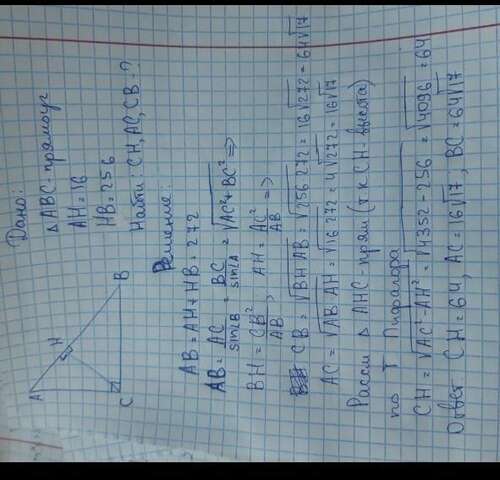 Дано:
△ABC - прямоуг
AH = 16
HB = 256
Найти: CH, AC, CB - ?
A
H
B
C
Решение:
AB = AH + HB = 272
AB = AC/sin∠B = BC/sin∠A = √(AC² + BC²) ⇒
BH = CB²/AB, AH = AC²/AB ⇒
CB = √(BH AB) = √(256 272) = 16√272 = 64√17
AC = √(AB AH) = √(16 272) = 4√272 = 16√17
Рассм △ AHC - прям (т к CH - высота)
по Т Пифагора
CH = √(AC² - AH²) = √(4352 - 256) = √4096 = 64
Ответ CH = 64, AC = 16√17, BC = 64√17